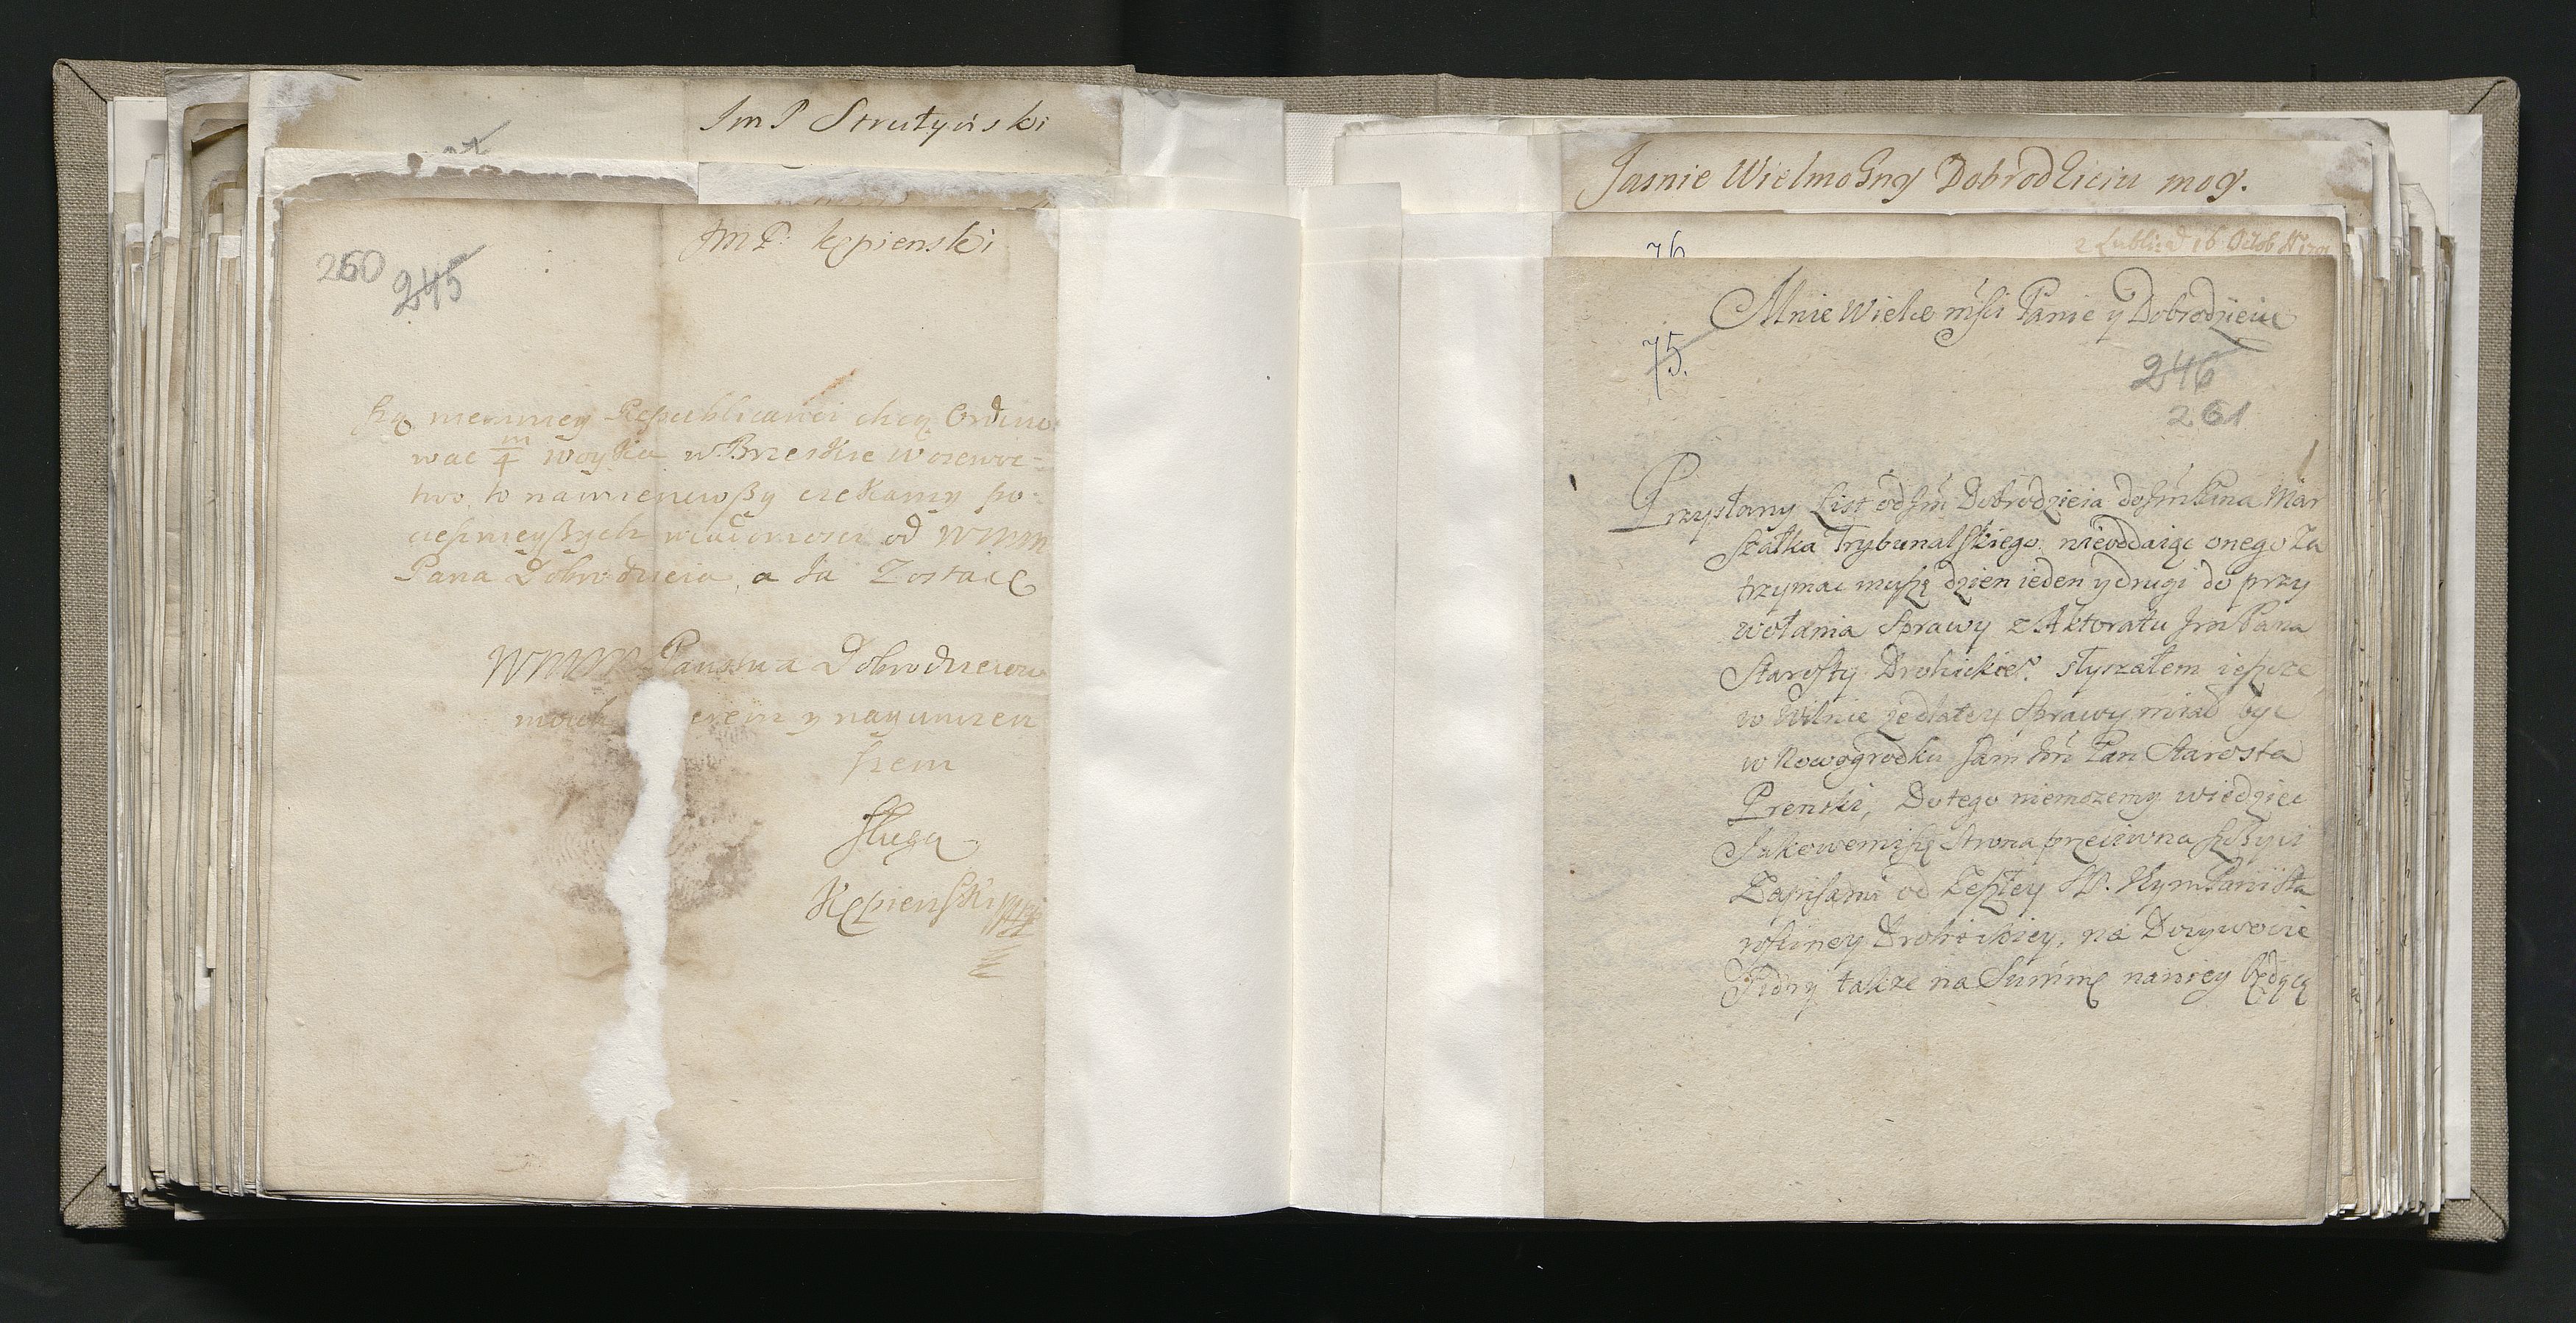 ImP Strutyński
ImP: Kępienski
260 245
woyska w Brzeskie Woiewoc-
two, to namieniwszy czekamy po-
cieszneyszych wiadomosci od WMM
Pana Dobrodzieia, a Ja Zostaię
WMM Panstwa Dobrodzieiow
moich y nayunizen
szem
Sługą
Kępienski
Jasnie Wielmozny Dobrodzieiu moy.
76
z Lublina d 16 Octob
Mnie Wielce mści Panie y Dobrodzieiu
75.
246
261
Przysłany List od Jm Dobrodzieia do Jm Pana Mar
szałka Trybunalskiego nieoddaiąc onego za
trzymac muszę dzien ieden y drugi do przy
wołania Sprawy z Aktoratu Jm Pana
Starosty Drohickieo. słyszałem ieszcze
w Wilnie ze dla tey Sprawy miał byc
w Nowogrodku sam Jm Pan Starosta
Prenski, Do tego niemozemy wiedziec
Jakowemi się Strona przeciwna
Zapisami od Zeszłey Jm Pani Sta
rosciney Drohickiey, na Dozywocie
także na Summę naniey będącą